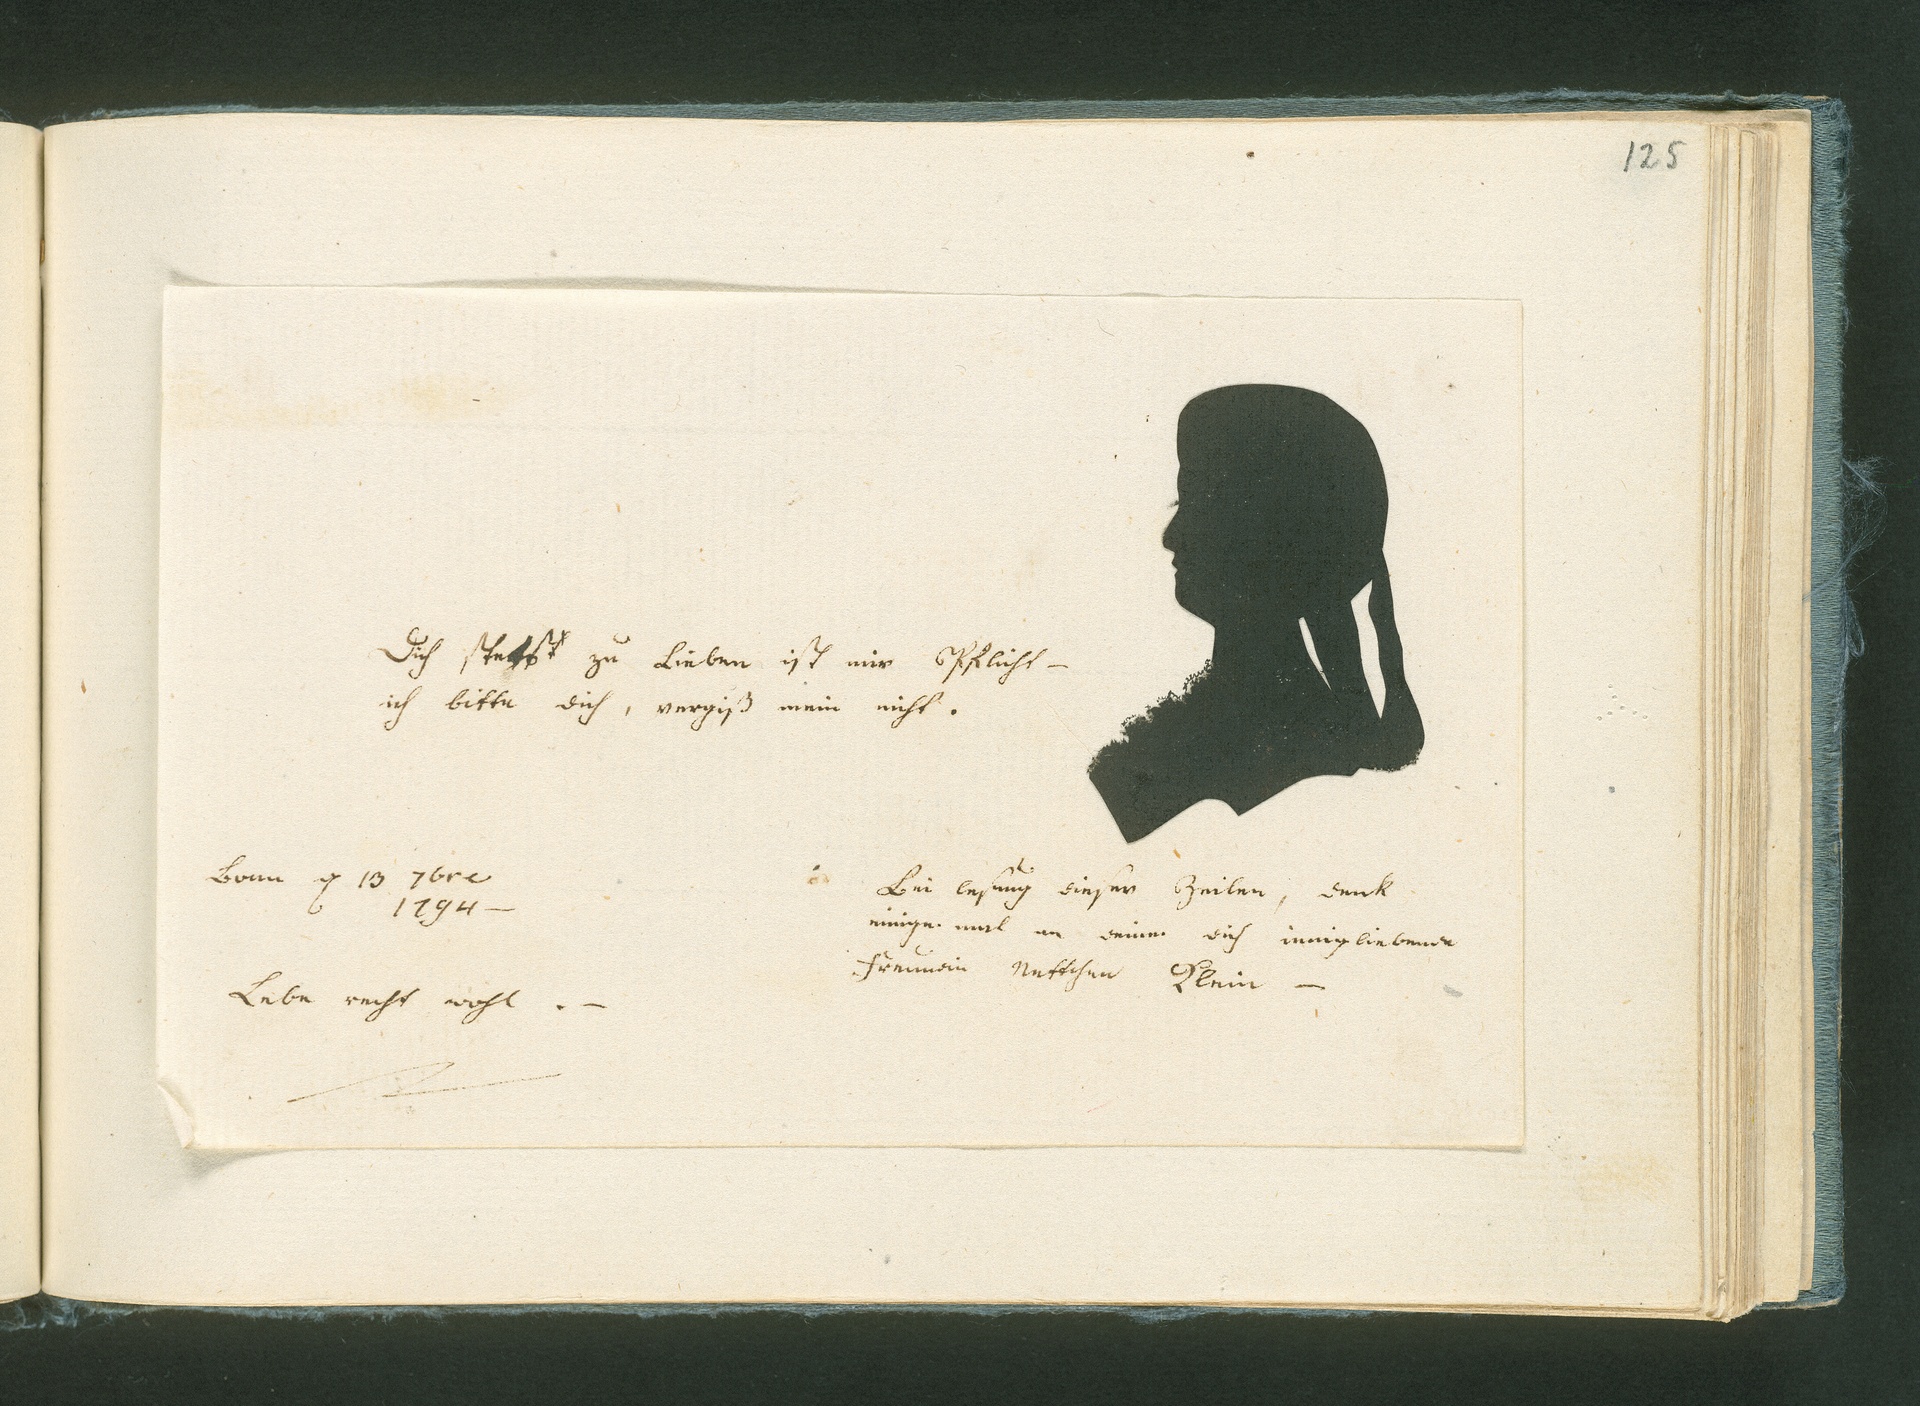 125
Dich stetst zu Lieben ist mir Pflicht –
ich bitte dich, vergiß mein nicht.
Bonn 13 7bre
1794 –
Lebe recht wohl . –
Bei lesung dieser Zeilen, denk
einige mal an deine dich innigliebende
Freundin Nettchen